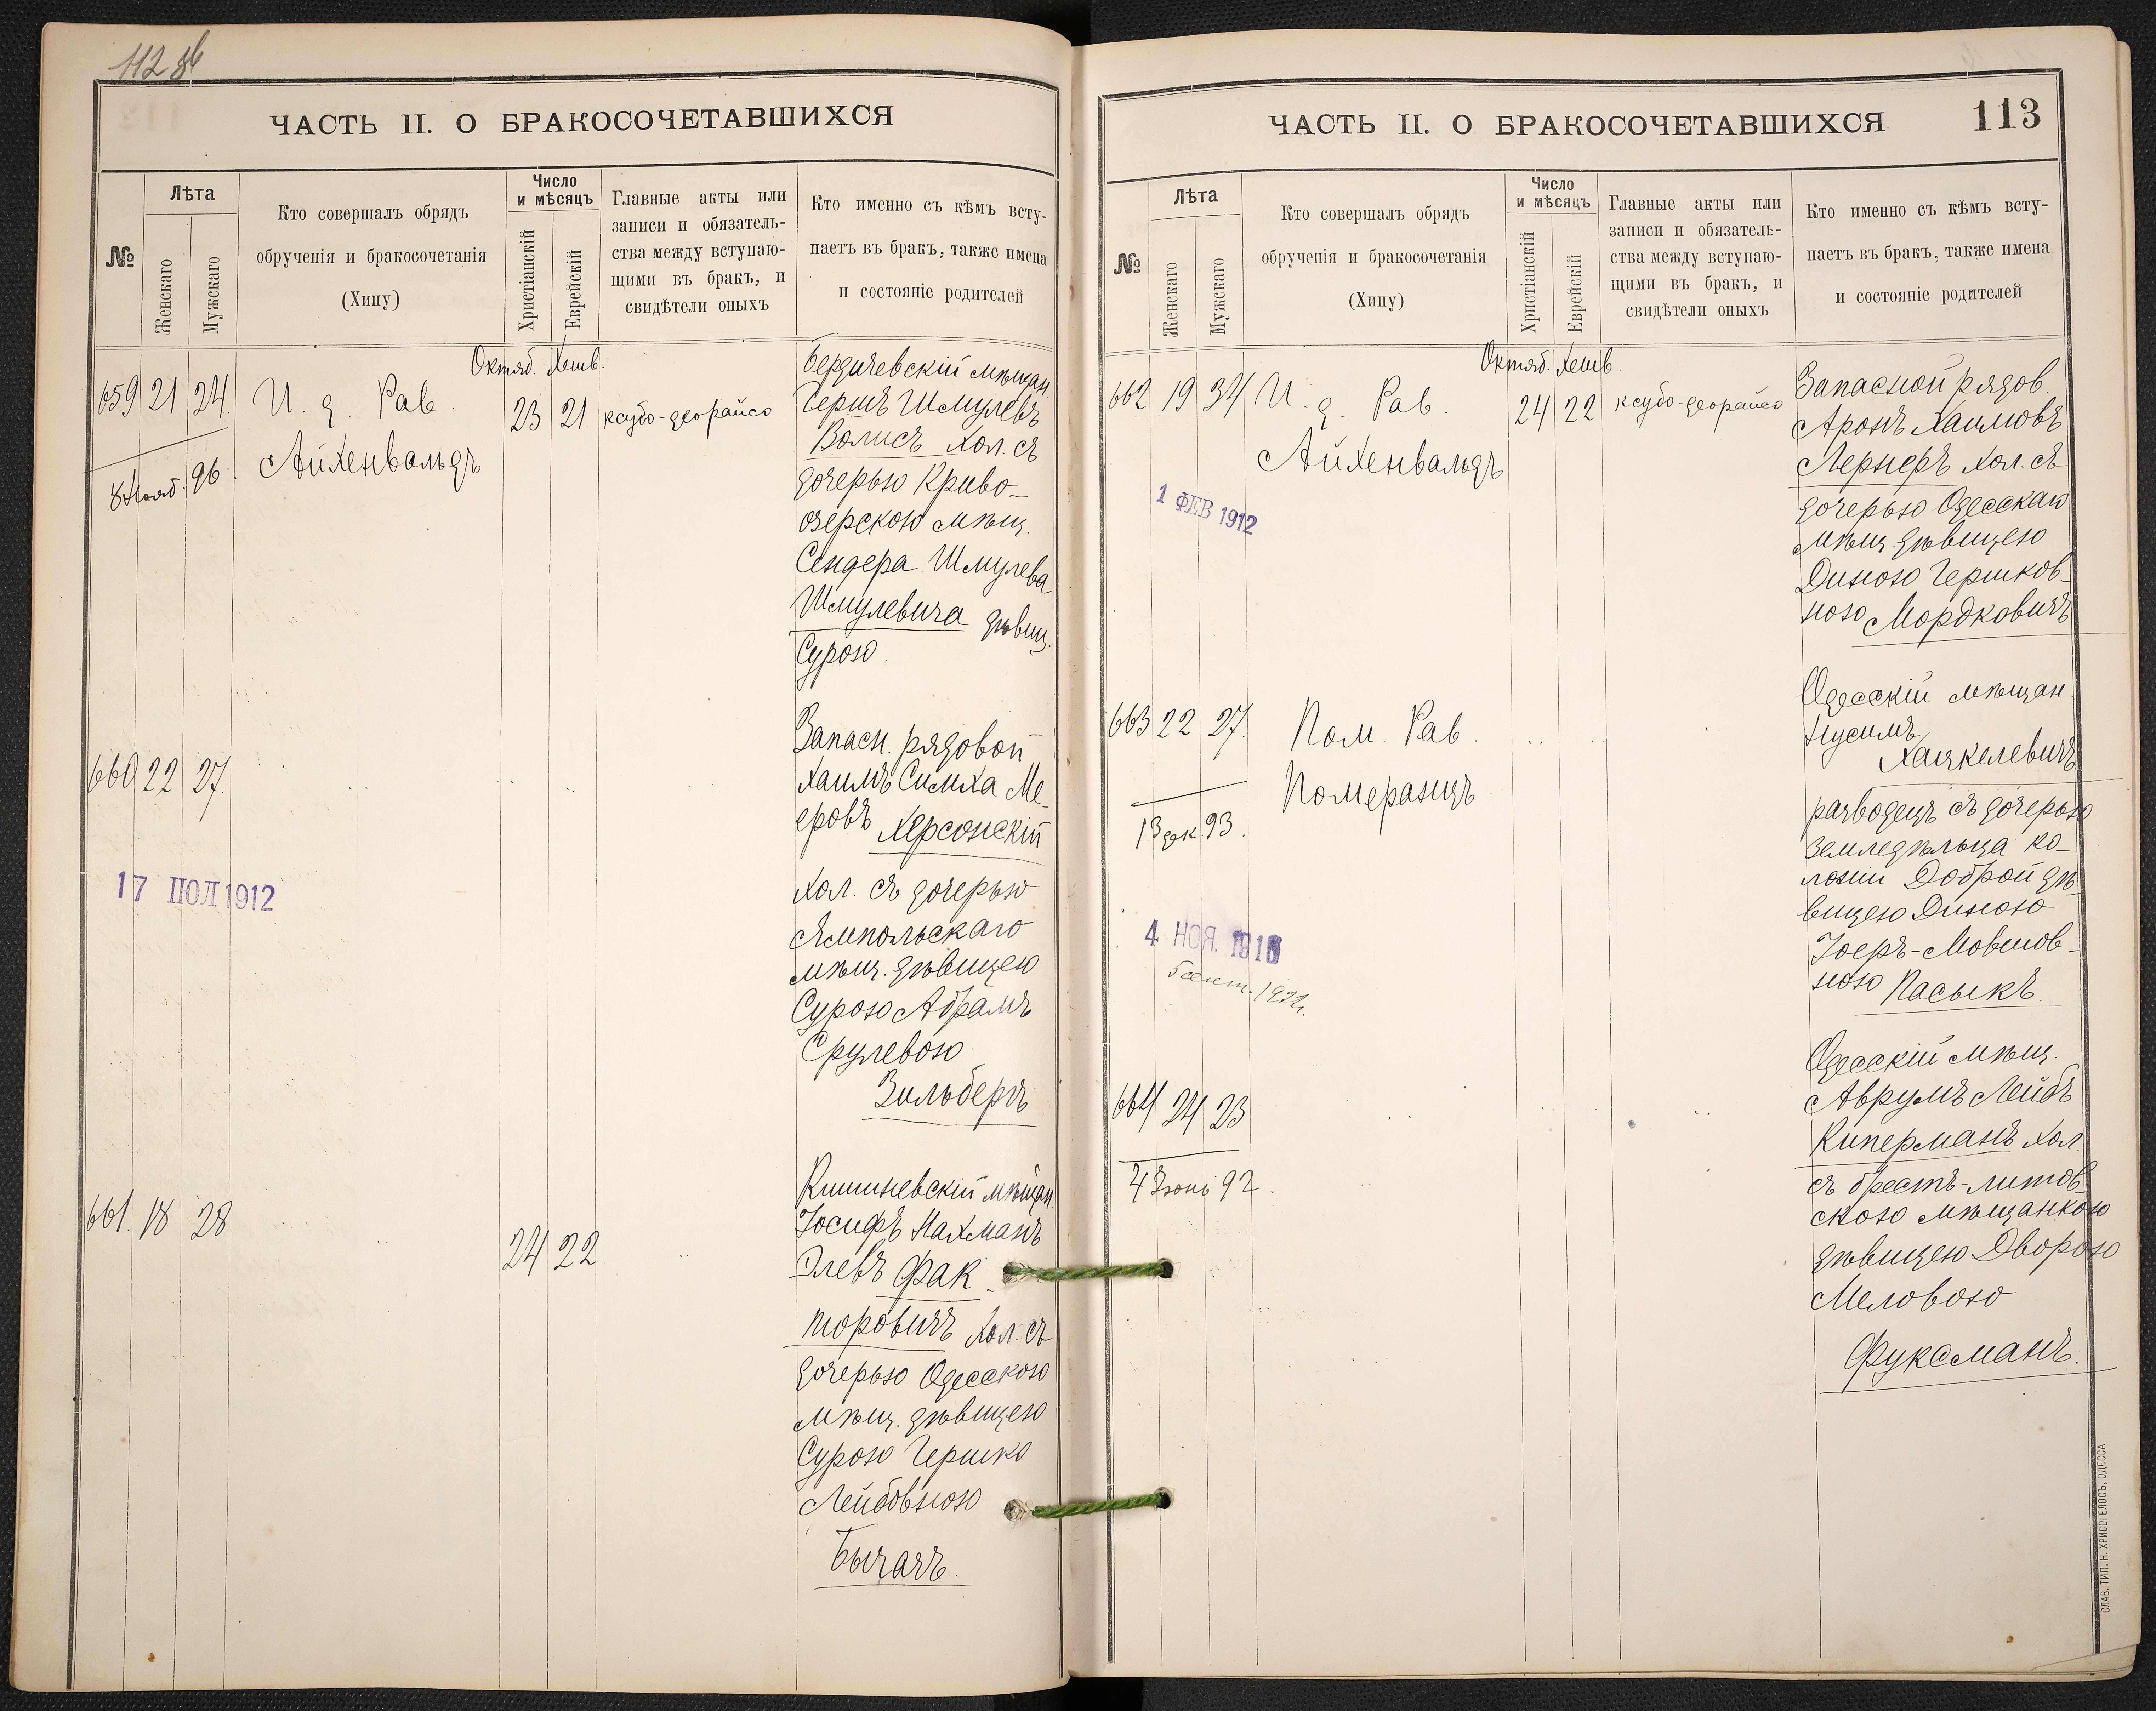 112 об
ЧАСТЬ II. О БРАКОСОЧЕТАВШИХСЯ
№
Лѣта
Женскаго
Мужскаго
Кто совершалъ обрядъ
обрученія и бракосочетанія
(Хипу)
Число
и мѣсяцъ
Христіанскій
Еврейскій
Главные акты или
записи и обязатель-
ства между вступаю-
щими въ бракъ, и
свидѣтели оныхъ
Кто именно съ кѣмъ всту-
паетъ въ бракъ, также имена
и состояніе родителей
Октяб. Хешв.
659 21 24.
И. д. Рав.
Айхенвальдъ
23 21.
ксубо-деорайсо
8 Нояб. 96.
Бердичевскій мѣщан.
Гершъ Шмулевъ
Волисъ хол. съ
дочерью Криво-
озерскою мѣщ.
Сендера Шмулева
Шмулевича дѣвиц.
Сурою.
660 22 27.
17 ІЮЛ 1912
Запасн. рядовой
Хаимъ Симха Ме-
еровъ Херсонскій
хол. съ дочерью
Ямпольскаго
мѣщ. дѣвицею
Сурою Абрамъ
Срулевою
Зильберъ
661. 18 28
24 22
Кишиневскій мѣщан.
Іосифъ Нахманъ
Элевъ Фак-
торовичъ хол. съ
дочерью Одесскою
мѣщ. дѣвицею
Сурою Гершко
Лейбовною
Бычачъ.
ЧАСТЬ II. О БРАКОСОЧЕТАВШИХСЯ
113
№
Лѣта
Женскаго
Мужскаго
Кто совершалъ обрядъ
обрученія и бракосочетанія
(Хипу)
Число
и мѣсяцъ
Христіанскій
Еврейскій
Главные акты или
записи и обязатель-
ства между вступаю-
щими въ бракъ, и
свидѣтели оныхъ
Кто именно съ кѣмъ всту-
паетъ въ бракъ, также имена
и состояніе родителей
Октяб. Хешв.
662 19 34
И. д. Рав.
Айхенвальдъ
24 22
ксубо-деорайсо
1 ФЕВ 1912
Запасной рядов.
Аронъ Хаимовъ
Лернеръ хол. съ
дочерью Одесскаго
мѣщ. дѣвицею
Диною Гершков-
ною Мордковичъ
663 22 27.
Пом. Рав.
Померанцъ
13 дек. 93.
4 НОЯ. 1916
6 сент. 1922г.
Одесскій мѣщан.
Нусимъ
Хацкелевичъ
разводецъ съ дочерью
земледѣльца ко-
лоніи Доброй дѣ-
вицею Диною
Іоеръ-Мовшов-
ною Пасыкъ.
664 24 23
4 Іюнь 92.
Одесскій мѣщ.
Аврумъ Лейбъ
Киперманъ хол.
съ брестъ-литов-
скою мѣщанкою
дѣвицею Дворою
Меловою
Фуксманъ.
СЛАВ. ТИП. Н. ХРИСОГЕЛОСЪ, ОДЕССА